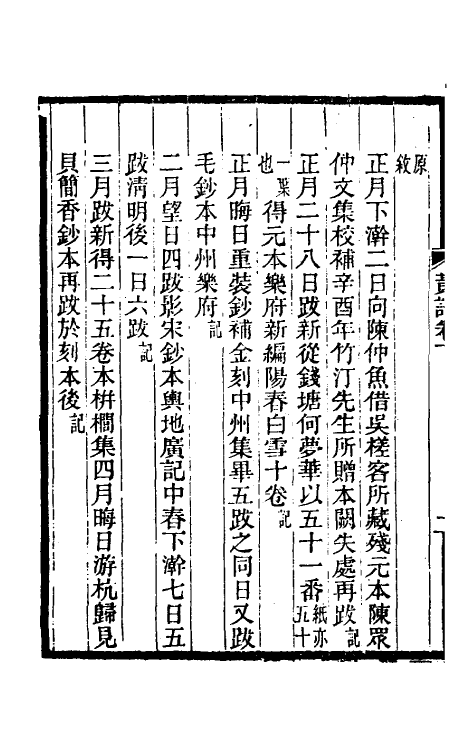 原敍
正月下澣二日向陳仲魚借吳槎客所藏殘元本陳眾
仲文集校補辛酉年竹汀先生所贈本闕失處再跋記
正月二十八日跋新從錢塘何夢華以五十一番紙亦五十
一葉也得元本樂府新編陽春白雪十卷記
正月晦日重裝鈔補金刻中州集畢五跋之同日又跋
毛鈔本中州樂府記
二月望日四跋影宋鈔本輿地廣記中春下澣七日五
跋淸明後一日六跋記
三月跋新得二十五卷本栟櫚集四月晦日游杭歸見
貝簡香鈔本再跋於刻本後記